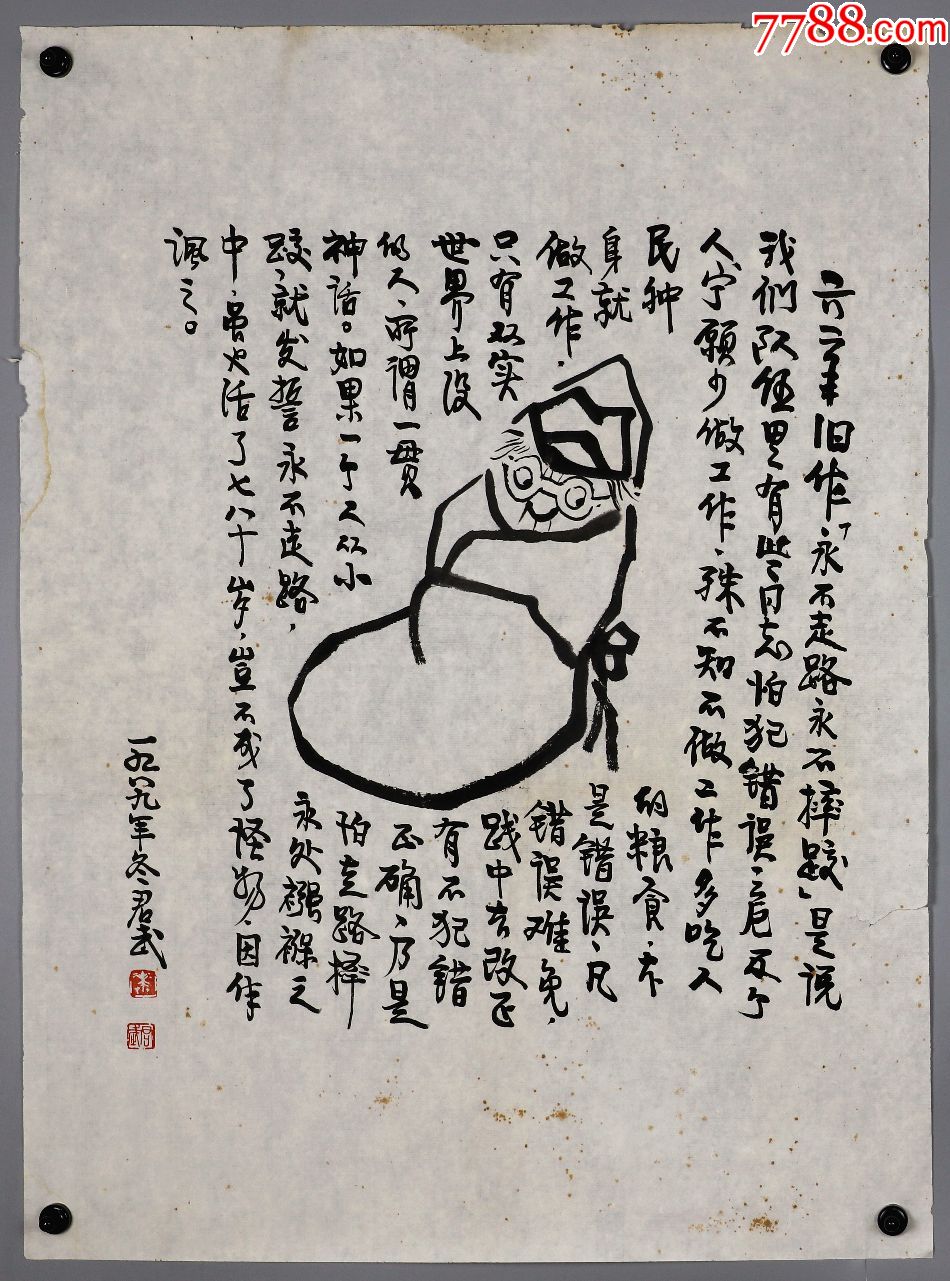 7788.com
六二年旧作「永不走路永不摔跤」是说
我们队伍里有些同志怕犯错误，危及个
人、宁愿少做工作，殊不知不做工作多吃人
民种的粮食，本
身就是错误，凡
做工作，错误难免，
只有从实践中去改正
世界上没有不犯错
的人，所谓一贯正确，乃是
神话。如果一个人从小怕走路摔
跤，就发誓永不走路，永处襁褓之
中，虽活了七八十岁，岂不成了怪物，因作
讽之。
一九八九年冬君武
君武